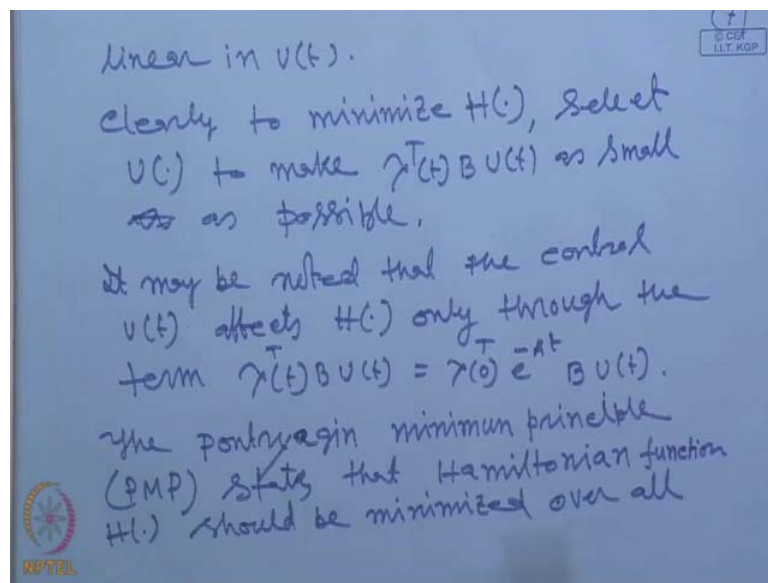 (7)
© CET
I.I.T. KGP
linear in U(t).
Clearly to minimize H(.), select
U(.) to make λᵀ(t) B U(t) as small
as possible.
It may be noted that the control
U(t) affects H(.) only through the
term λᵀ(t) B U(t) = λ(0)ᵀ e^{-At} B U(t).
The pontryagin minimun principle
(PMP) states that Hamiltonian function
H(.) should be minimized over all
NPTEL